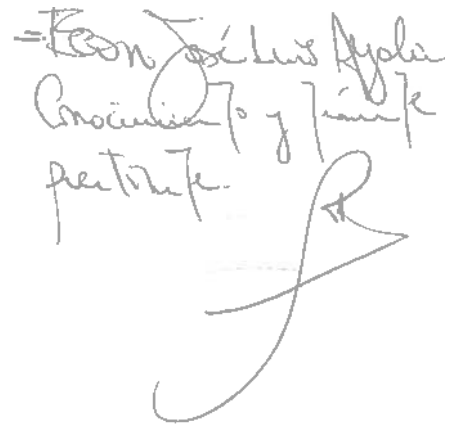 = Econ José Luis Ayala
Conocimiento y trámite
pertinente.